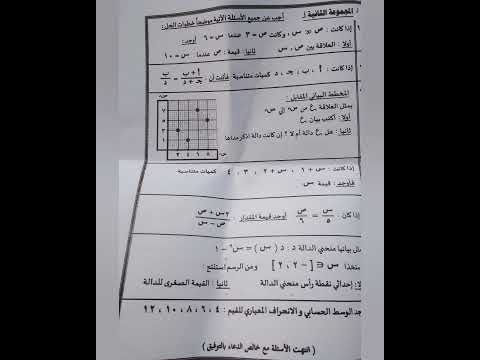 المجموعة الثانية :
أجب عن جميع الأسئلة الآتية موضحاً خطوات الحل:
إذا كانت : ص ∝ س ، وكانت ص = ٣ عندما س = ٦ أوجد:
أولا : العلاقة بين ص ، س ثانيا : قيمة ص عندما س = ١٠
إذا كانت : أ ، ب ، جـ ، د كميات متناسبة فأثبت أن : (أ + ب)/(جـ + د) = ب/د
المخطط البياني المقابل :
يمثل العلاقة ع من س إلى ص
أولا : أكتب بيان ع
ثانيا : هل ع دالة أم لا ؟ إن كانت دالة اذكر مداها
ص
٧
٥
٣
١
٢ ٤ ٦ ٨
س
إذا كانت : س + ٦ ، س + ٢ ، ٣ ، ٤ كميات متناسبة
فأوجد : قيمة س
إذا كان : س/٥ = ص/٦ أوجد قيمة المقدار : (٢س + ص)/(ص − س)
بيانيا منحنى الدالة د : د ( س ) = س٢ − ١
متخذا س ∈ [ −٢ ، ٢ ] ومن الرسم استنتج :
إحداثي نقطة رأس منحنى الدالة ثانيا : القيمة الصغرى للدالة
جد الوسط الحسابي و الانحراف المعياري للقيم : ٤ ، ٦ ، ٨ ، ١٠ ، ١٢
( انتهت الأسئلة مع خالص الدعاء بالتوفيق )